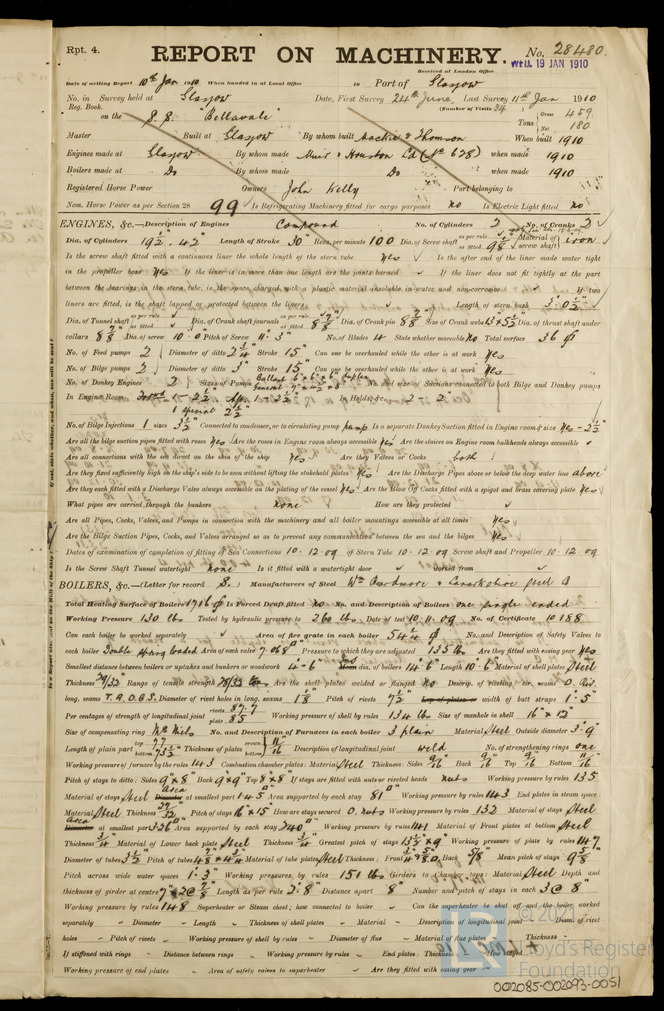 Rpt. 4.
REPORT ON MACHINERY.
No. 28480.
Received at London Office
WED. 19 JAN 1910
Date of writing Report 10th Jan 1910 When handed in at Local Office 19 Port of Glasgow
No. in Survey held at Glasgow Date, First Survey 24th June, Last Survey 11th Jan 1910
Reg. Book. (Number of Visits 34
on the S.S. "Bellavale" Tons Gross 459 Net 180
Master Built at Glasgow By whom built Mackie & Thomson When built 1910
Engines made at Glasgow By whom made Muir & Houston Ld (No 628) when made 1910
Boilers made at Do By whom made Do when made 1910
Registered Horse Power Owners John Kelly Port belonging to
Nom. Horse Power as per Section 28 99 Is Refrigerating Machinery fitted for cargo purposes no Is Electric Light fitted no
ENGINES, &c.—Description of Engines Compound No. of Cylinders 2 No. of Cranks 2
Dia. of Cylinders 19½" . 42" Length of Stroke 30" Revs. per minute 100 Dia. of Screw shaft as per rule as fitted Material of screw shaft iron
Is the screw shaft fitted with a continuous liner the whole length of the stern tube yes Is the after end of the liner made water tight
in the propeller boss yes If the liner is in more than one length are the joints burned If the liner does not fit tightly at the part
between the bearings in the stern tube, is the space charged with a plastic material insoluble in water and non-corrosive If two
liners are fitted, is the shaft lapped or protected between the liners Length of stern bush 3' 0½"
Dia. of Tunnel shaft as per rule as fitted Dia. of Crank shaft journals as per rule as fitted 8⅞" Dia. of Crank pin 8⅞" Size of Crank webs 13" x 5½" Dia. of thrust shaft under
collars 8⅞" Dia. of screw 10' 0" Pitch of Screw 11' 3" No. of Blades 4 State whether moveable no Total surface 36
No. of Feed pumps 2 Diameter of ditto 2¾" Stroke 15" Can one be overhauled while the other is at work yes
No. of Bilge pumps 2 Diameter of ditto 3" Stroke 15" Can one be overhauled while the other is at work yes
No. of Donkey Engines 2 Sizes of Pumps Ballast 6" x 6" x 6" duplex No. and size of Suctions connected to both Bilge and Donkey pumps
In Engine Room In Holds, &c.
1 Special 2½"
No. of Bilge Injections 1 sizes 3½" Connected to condenser, or to circulating pump pump Is a separate Donkey Suction fitted in Engine room & size yes - 2½"
Are all the bilge suction pipes fitted with roses yes Are the roses in Engine room always accessible yes Are the sluices on Engine room bulkheads always accessible
Are all connections with the sea direct on the skin of the ship yes Are they Valves or Cocks both
Are they fixed sufficiently high on the ship's side to be seen without lifting the stokehold plates yes Are the Discharge Pipes above or below the deep water line above
Are they each fitted with a Discharge Valve always accessible on the plating of the vessel yes Are the Blow Off Cocks fitted with a spigot and brass covering plate yes
What pipes are carried through the bunkers none How are they protected
Are all Pipes, Cocks, Valves, and Pumps in connection with the machinery and all boiler mountings accessible at all times yes
Are the Bilge Suction Pipes, Cocks, and Valves arranged so as to prevent any communication between the sea and the bilges yes
Dates of examination of completion of fitting of Sea Connections 10.12.09 of Stern Tube 10.12.09 Screw shaft and Propeller 10.12.09
Is the Screw Shaft Tunnel watertight none Is it fitted with a watertight door worked from
BOILERS, &c.—(Letter for record S.) Manufacturers of Steel Wm Beardmore & Lanarkshire Steel Co
Total Heating Surface of Boilers 1716 Is Forced Draft fitted no No. and Description of Boilers one single ended
Working Pressure 130 lbs Tested by hydraulic pressure to 260 lbs Date of test 10.11.09 No. of Certificate 10188
Can each boiler be worked separately Area of fire grate in each boiler 54.4 No. and Description of Safety Valves to
each boiler Double Spring loaded Area of each valve 7.068" Pressure to which they are adjusted 135 lbs Are they fitted with easing gear yes
Smallest distance between boilers or uptakes and bunkers or woodwork 4'-6" dia. of boilers 14'6" Length 10'6" Material of shell plates Steel
Thickness 29/32" Range of tensile strength 28/32 tons Are the shell plates welded or flanged no Descrip. of riveting: cir. seams D. Riv.
long. seams T.R.D.B.S. Diameter of rivet holes in long. seams 1⅛" Pitch of rivets 7½" Lap of plates or width of butt straps 1' 5"
Per centages of strength of longitudinal joint rivets 87.7 plate 85 Working pressure of shell by rules 134 lbs Size of manhole in shell 16" x 12"
Size of compensating ring McNeils No. and Description of Furnaces in each boiler 3 plain Material Steel Outside diameter 3'.9"
Length of plain part top bottom Thickness of plates crown bottom 11/16" Description of longitudinal joint weld No. of strengthening rings one
Working pressure of furnace by the rules 143 Combustion chamber plates: Material Steel Thickness: Sides 9/16" Back 9/16" Top 9/16" Bottom 11/16"
Pitch of stays to ditto: Sides 9" x 8" Back 9" x 9" Top 8" x 8" If stays are fitted with nuts or riveted heads nuts Working pressure by rules 135
Material of stays Steel Diameter Area at smallest part 1.45" Area supported by each stay 81" Working pressure by rules 143 End plates in steam space:
Material Steel Thickness Pitch of stays 16" x 15" How are stays secured D. nuts Working pressure by rules 132 Material of stays Steel
Diameter Area at smallest part 3.26" Area supported by each stay 240" Working pressure by rules 141 Material of Front plates at bottom Steel
Thickness ¾" Material of Lower back plate Steel Thickness ¾" Greatest pitch of stays 13½" x 9" Working pressure of plate by rules 147
Diameter of tubes 3½" Pitch of tubes Material of tube plates Steel Thickness: Front Back ⅞" Mean pitch of stays 9⅝"
Pitch across wide water spaces 1'.3" Working pressures by rules 151 lbs Girders to Chamber tops: Material Steel Depth and
thickness of girder at centre 7" x 2 @ ⅞" Length as per rule 2'.8" Distance apart 8" Number and pitch of stays in each 3 @ 8"
Working pressure by rules 148 Superheater or Steam chest; how connected to boiler Can the superheater be shut off and the boiler worked
separately Diameter Length Thickness of shell plates Material Description of longitudinal joint Diam. of rivet
holes Pitch of rivets Working pressure of shell by rules Diameter of flue Material of flue plates Thickness
If stiffened with rings Distance between rings Working pressure by rules End plates: Thickness How stayed
Working pressure of end plates Area of safety valves to superheater Are they fitted with easing gear
© 2021
Lloyd's Register
Foundation
002085-002093-0051